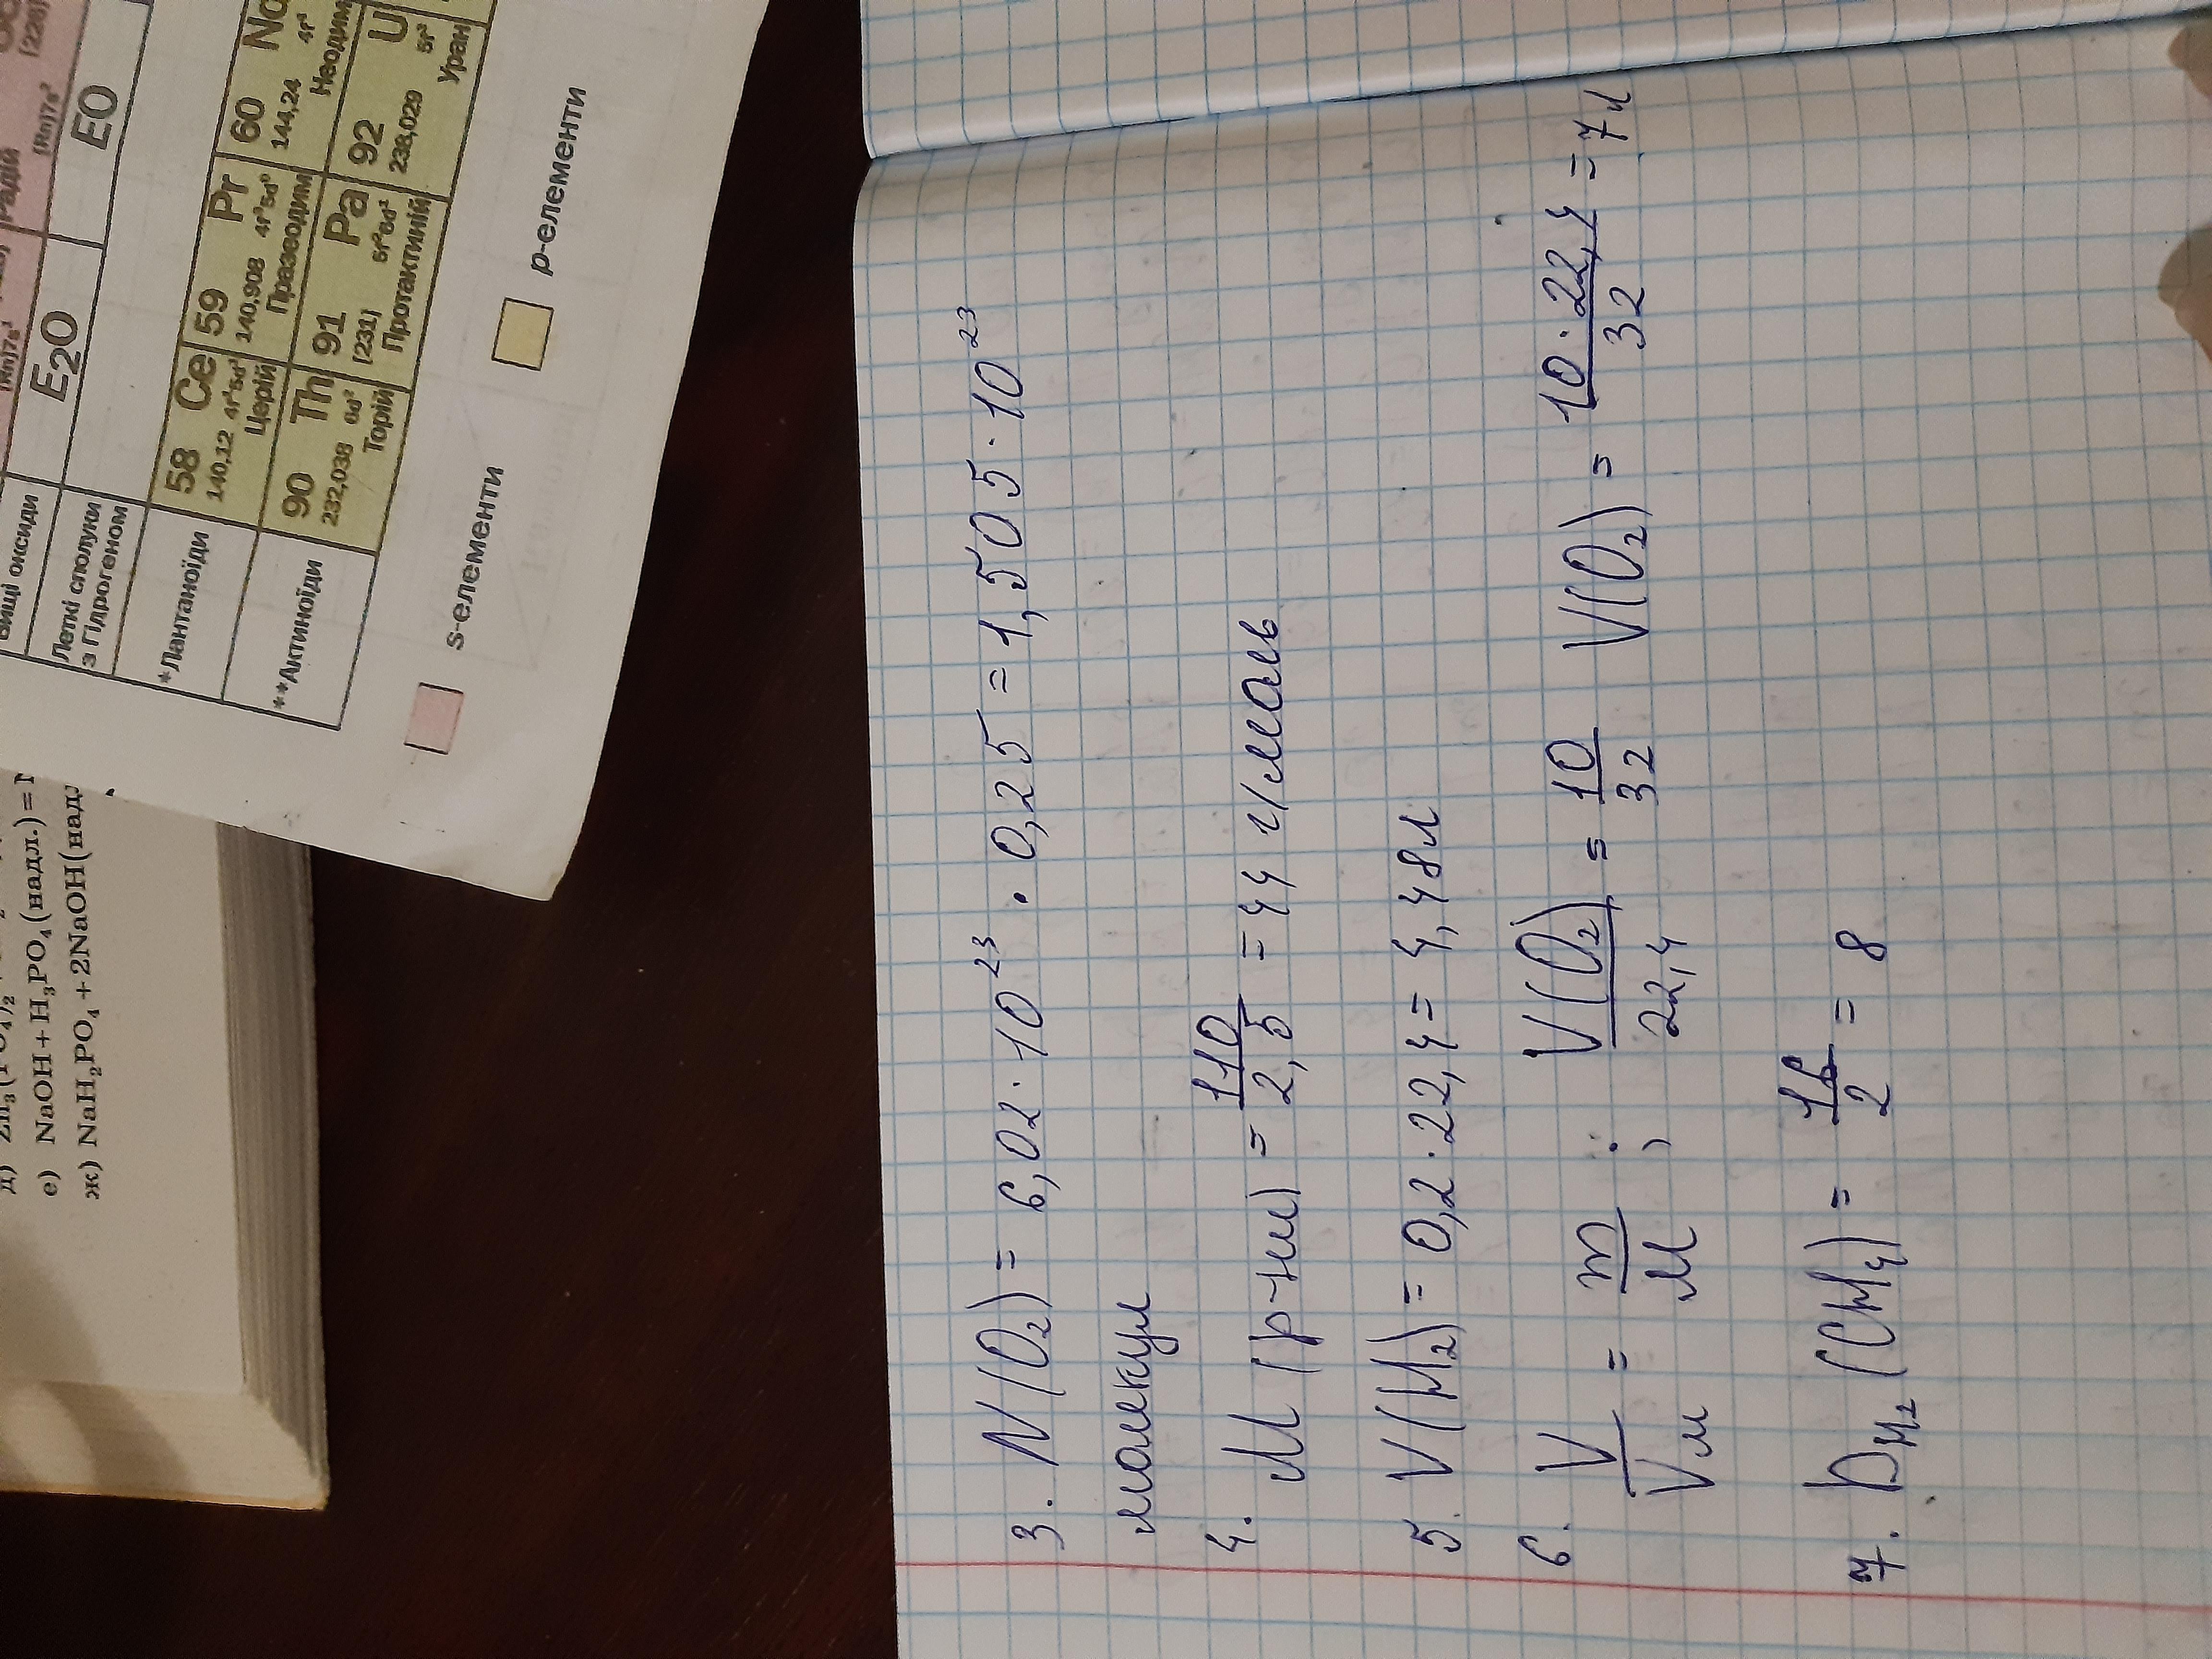 д) Zn₃(PO₄)₂
е) NaOH + H₃PO₄(надл.) =
ж) NaH₂PO₄ + 2NaOH(над
Вищі оксиди E₂O EO
Леткі сполуки
з Гідрогеном
*Лантаноїди
58 Ce
140,12 4f¹5d¹
Церій
59 Pr
140,908 4f³5d⁰
Празеодим
60 Nd
144,24 4f⁴
Неодим
**Актиноїди
90 Th
232,038 6d²
Торій
91 Pa
[231] 5f²6d¹
Протактиній
92 U
238,029 5f³
Уран
s-елементи p-елементи
3. N(O₂) = 6,02 · 10²³ · 0,25 = 1,505 · 10²³
молекул
4. M (р-ни) = 110/2,5 = 44 г/моль
5. V(H₂) = 0,2 · 22,4 = 4,48л
6. V/Vм = m/M ; V(O₂)/22,4 = 10/32 V(O₂) = 10 · 22,4/32 = 7л
7. D_H₂ (CH₄) = 16/2 = 8